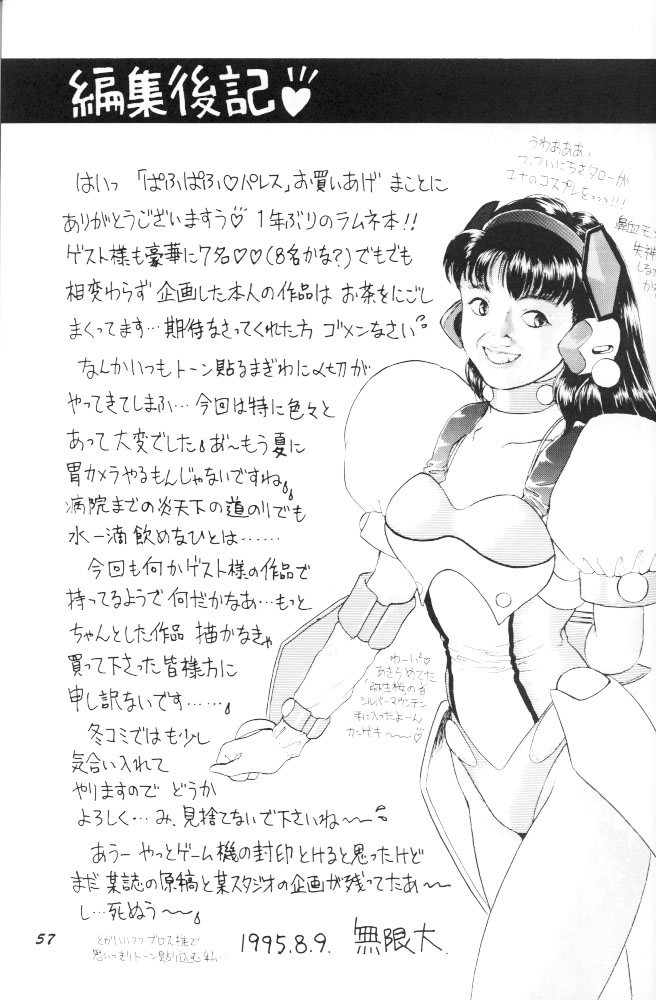 編集後記♡
はいっ 「ぱふぱふ♡パレス」お買いあげ まことに
ありがとうございますう♡ 1年ぶりのラムネ本!!
ゲスト様も豪華に7名♡♡(8名かな?)でもでも
相変わらず 企画した本人の作品は お茶をにごし
まくってます…期待なさってくれた方 ゴメンなさい
なんかいつもトーン貼るまぎわに〆切が
やってきてしまふ…今回は特に色々と
あって大変でした。あ〜もう夏に
胃カメラやるもんじゃないですね。
病院までの炎天下の道のりでも
水一滴飲めないひとは……
今回も何かゲスト様の作品で
持ってるようで何だかなあ…もっと
ちゃんとした作品 描かなきゃ
買って下さった皆様方に
申し訳ないです……。
冬コミではも少し
気合い入れて
やりますので どうか
よろしく…み、見捨てないで下さいね〜〜
あうー やっとゲーム機の封印とけると思ったけど
まだ某誌の原稿と某スタジオの企画が残ってたあ〜
し…死ぬう〜〜。
1995.8.9. 無限大
うわあああ、
つ、ついにちさタローが
ユナのコスプレをっっっ!!!
鼻血モ
失神
しな
が
わーい♡
あきらめてた
「弥生桜の名
シルバーマウンテン
手に入ったよーん
カンゲキ〜〜♡
とかいいつつ ブロス様で
思いっきりトーン貼り込む私…
57